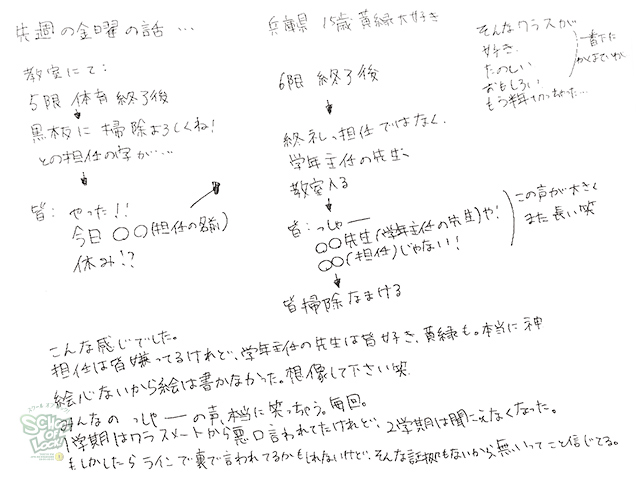 先週の金曜の話…
教室にて:
5限 体育 終了後
黒板に 掃除よろしくね!
との担任の字が…
皆: やった!!
今日 〇〇(担任の名前)
休み!?
兵庫県 15歳 黄緑大好き
6限 終了後
終礼、担任ではなく、
学年主任の先生、
教室入る
皆: っしゃー
〇〇先生(学年主任の先生)や!
〇〇(担任)じゃない!
この声が大きく
また長い笑
皆掃除なまける
そんなクラスが
好き。
たのしい
おもしろい
もう半年切った…
こんな感じでした。
担任は皆嫌ってるけれど、学年主任の先生は皆好き、黄緑も。本当に神
絵心ないから絵は書かなかった。想像して下さい笑
みんなの っしゃー の声、本当に笑っちゃう。毎回。
1学期はクラスメートから悪口言われてたけれど、2学期は聞こえなくなった。
もしかしたらラインで裏で言われてるかもしれないけど、そんな証拠もないから無いってこと信じてる。
SCHOOL OF LOCK!